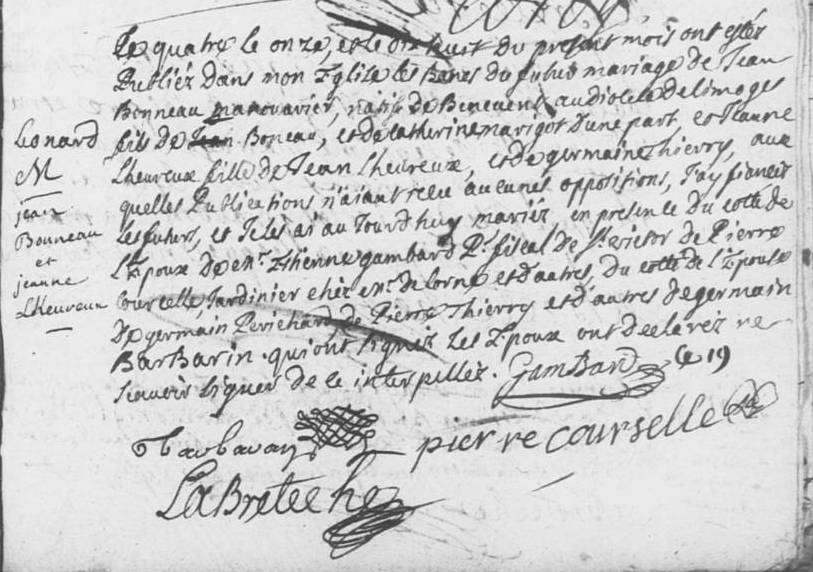 Le quatre le onze, et le dix huit du present mois ont estés
Publiéz dans mon Eglise les Bancs du futur mariage de Jean
Bonneau manouvrier, natif de Benevent au diocese de limoges
fils de Jean Boneau, et de catherine marigot d'une part et Jeanne
Lheureux fille de Jean Lheureux, et de germaine Thierry, aux
quelles Publications n'aiant receu aucunes oppositions, J'ay fiancéz
les futurs, et Je les ai au Jourd'huy mariéz, en presence du cotté de
L'Epoux de Mr. Etienne gambard Pr. fiscal de St. victor de Pierre
Courcelle, Jardinier chéz Mr. de Lorne et d'autres, du cotté de l'Epouse
De germain Perichard de Pierre Thierry et d'autres de germain
BarBarin. qui ont signéz Les Epoux ont declaréz ne
scavoir signer de ce interpelléz. GamBard Ce 19
Leonard
M
jean
Bonneau
et
jeanne
Lheureux
pierre courselle
LaBreteche